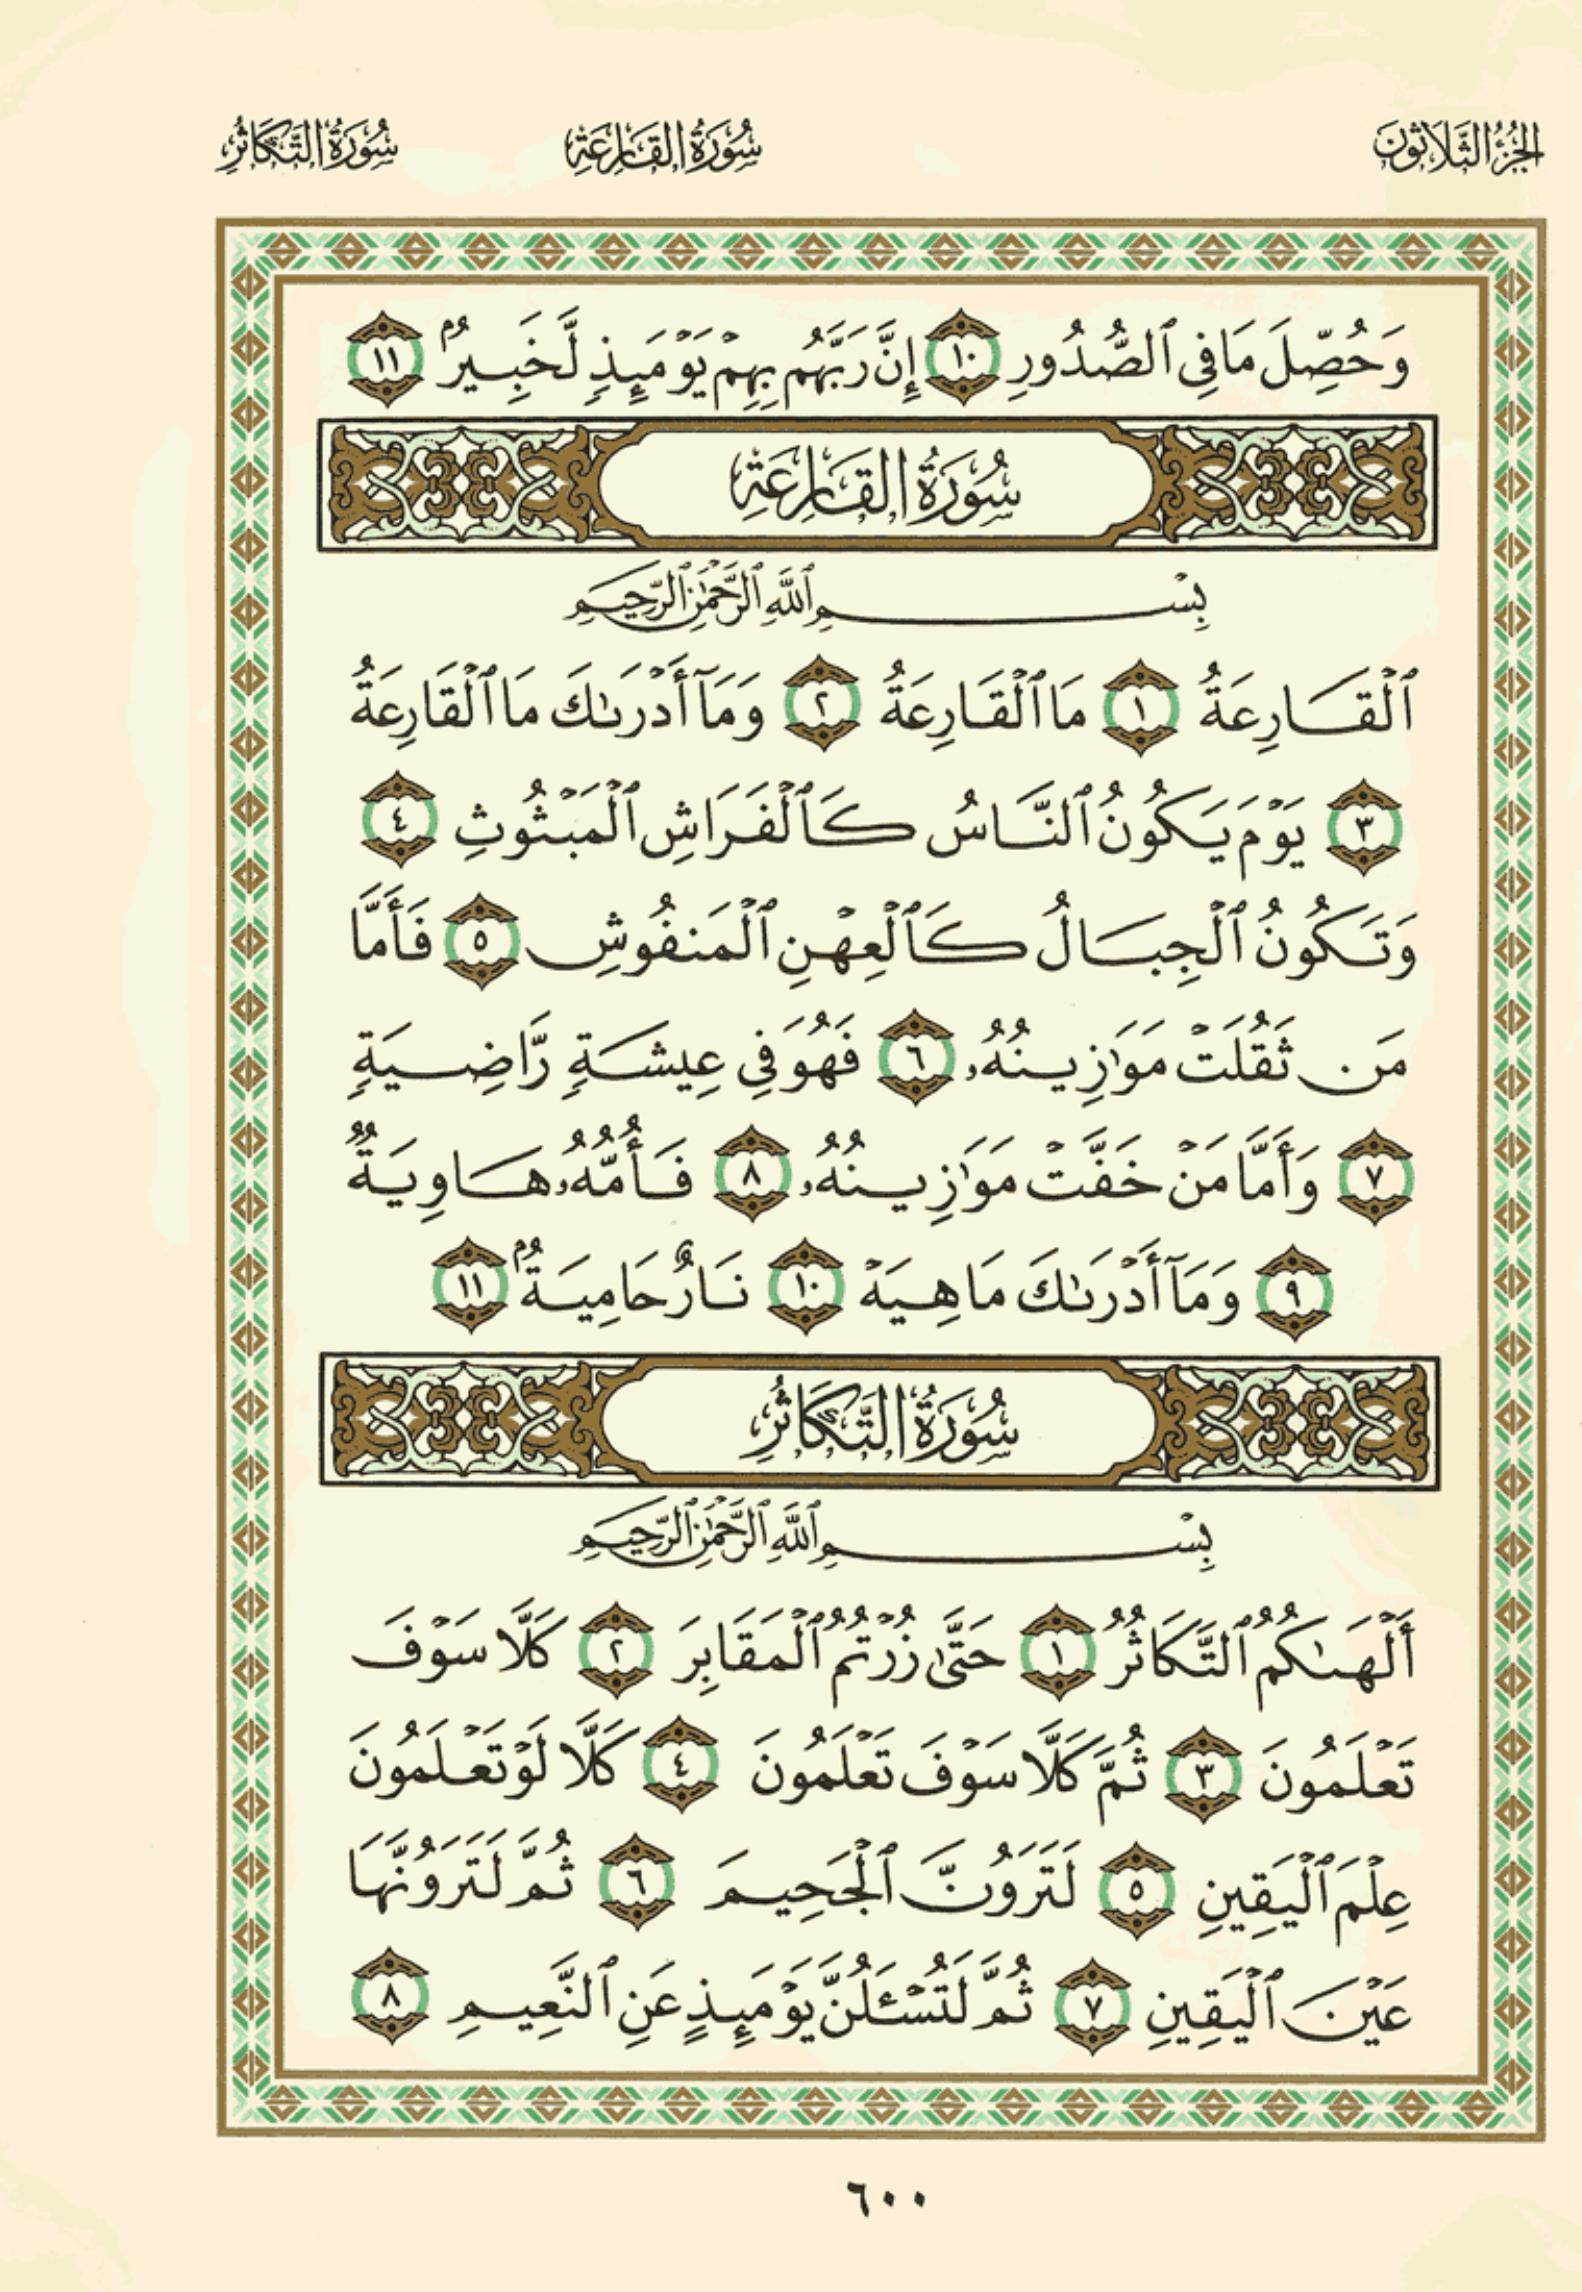 الجُزْءُ الثَّلَاثُونَ سُورَةُ القَارِعَةِ سُورَةُ التَّكَاثُرِ
وَحُصِّلَ مَا فِي ٱلصُّدُورِ ١٠ إِنَّ رَبَّهُم بِهِمْ يَوْمَئِذٍ لَّخَبِيرٌۢ ١١
سُورَةُ القَارِعَةِ
بِسْمِ ٱللَّهِ ٱلرَّحْمَٰنِ ٱلرَّحِيمِ
ٱلْقَارِعَةُ ١ مَا ٱلْقَارِعَةُ ٢ وَمَآ أَدْرَىٰكَ مَا ٱلْقَارِعَةُ
٣ يَوْمَ يَكُونُ ٱلنَّاسُ كَٱلْفَرَاشِ ٱلْمَبْثُوثِ ٤
وَتَكُونُ ٱلْجِبَالُ كَٱلْعِهْنِ ٱلْمَنفُوشِ ٥ فَأَمَّا
مَن ثَقُلَتْ مَوَٰزِينُهُۥ ٦ فَهُوَ فِي عِيشَةٍ رَّاضِيَةٍ
٧ وَأَمَّا مَنْ خَفَّتْ مَوَٰزِينُهُۥ ٨ فَأُمُّهُۥ هَاوِيَةٌ
٩ وَمَآ أَدْرَىٰكَ مَا هِيَهْ ١٠ نَارٌ حَامِيَةٌۢ ١١
سُورَةُ التَّكَاثُرِ
بِسْمِ ٱللَّهِ ٱلرَّحْمَٰنِ ٱلرَّحِيمِ
أَلْهَىٰكُمُ ٱلتَّكَاثُرُ ١ حَتَّىٰ زُرْتُمُ ٱلْمَقَابِرَ ٢ كَلَّا سَوْفَ
تَعْلَمُونَ ٣ ثُمَّ كَلَّا سَوْفَ تَعْلَمُونَ ٤ كَلَّا لَوْ تَعْلَمُونَ
عِلْمَ ٱلْيَقِينِ ٥ لَتَرَوُنَّ ٱلْجَحِيمَ ٦ ثُمَّ لَتَرَوُنَّهَا
عَيْنَ ٱلْيَقِينِ ٧ ثُمَّ لَتُسْـَٔلُنَّ يَوْمَئِذٍ عَنِ ٱلنَّعِيمِ ٨
٦٠٠